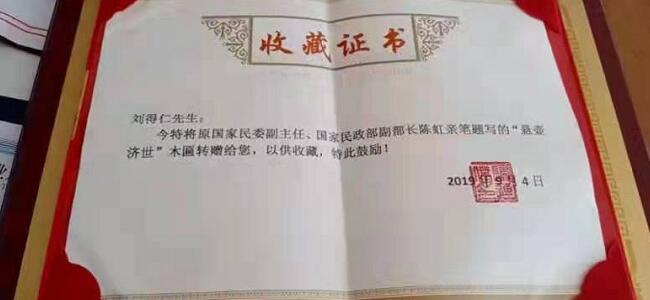 收藏证书
刘得仁先生：
今特将原国家民委副主任、国家民政部副部长陈虹亲笔题写的“悬壶
济世”木匾转赠给您，以供收藏，特此鼓励！
2019年9月4日